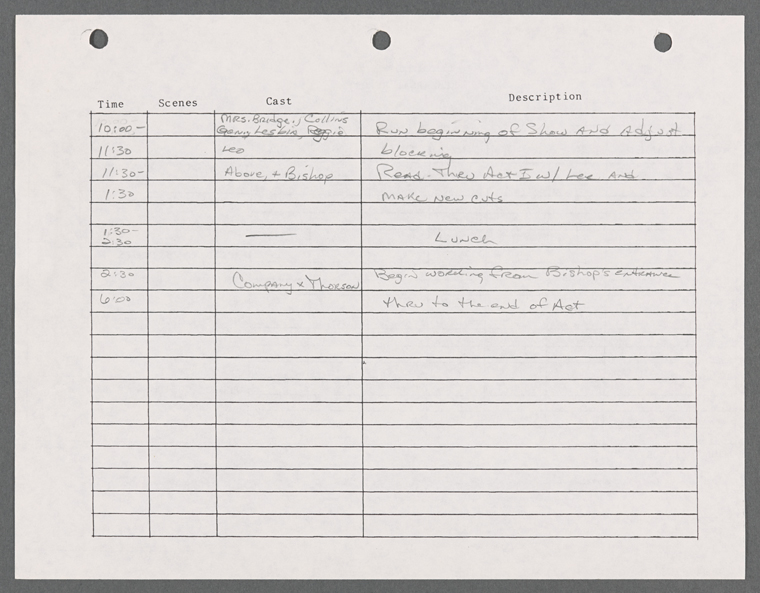 Time Scenes Cast Description
Mrs. Bridge, Collins
10:00- Leslie, Reggie Run beginning of Show And Adjust
11:30 Leo blocking
11:30- Above, + Bishop Read-Thru Act I w/ Lee And
1:30 make new cuts
1:30-
2:30 — Lunch
2:30 Company & Thorson Begin working from Bishop's entrance
6:00 thru to the end of Act